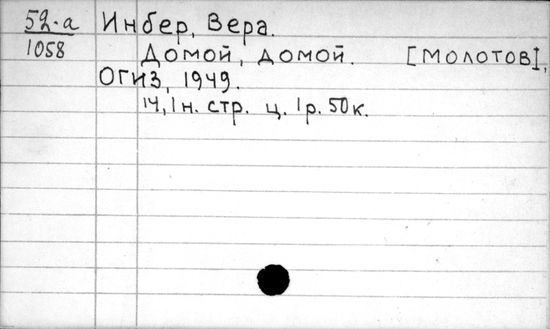 52-а Инбер, Вера.
1058 Домой, домой. [Молотов],
ОГИЗ, 1949.
14, 1 н. стр. ц. 1 р. 50 к.